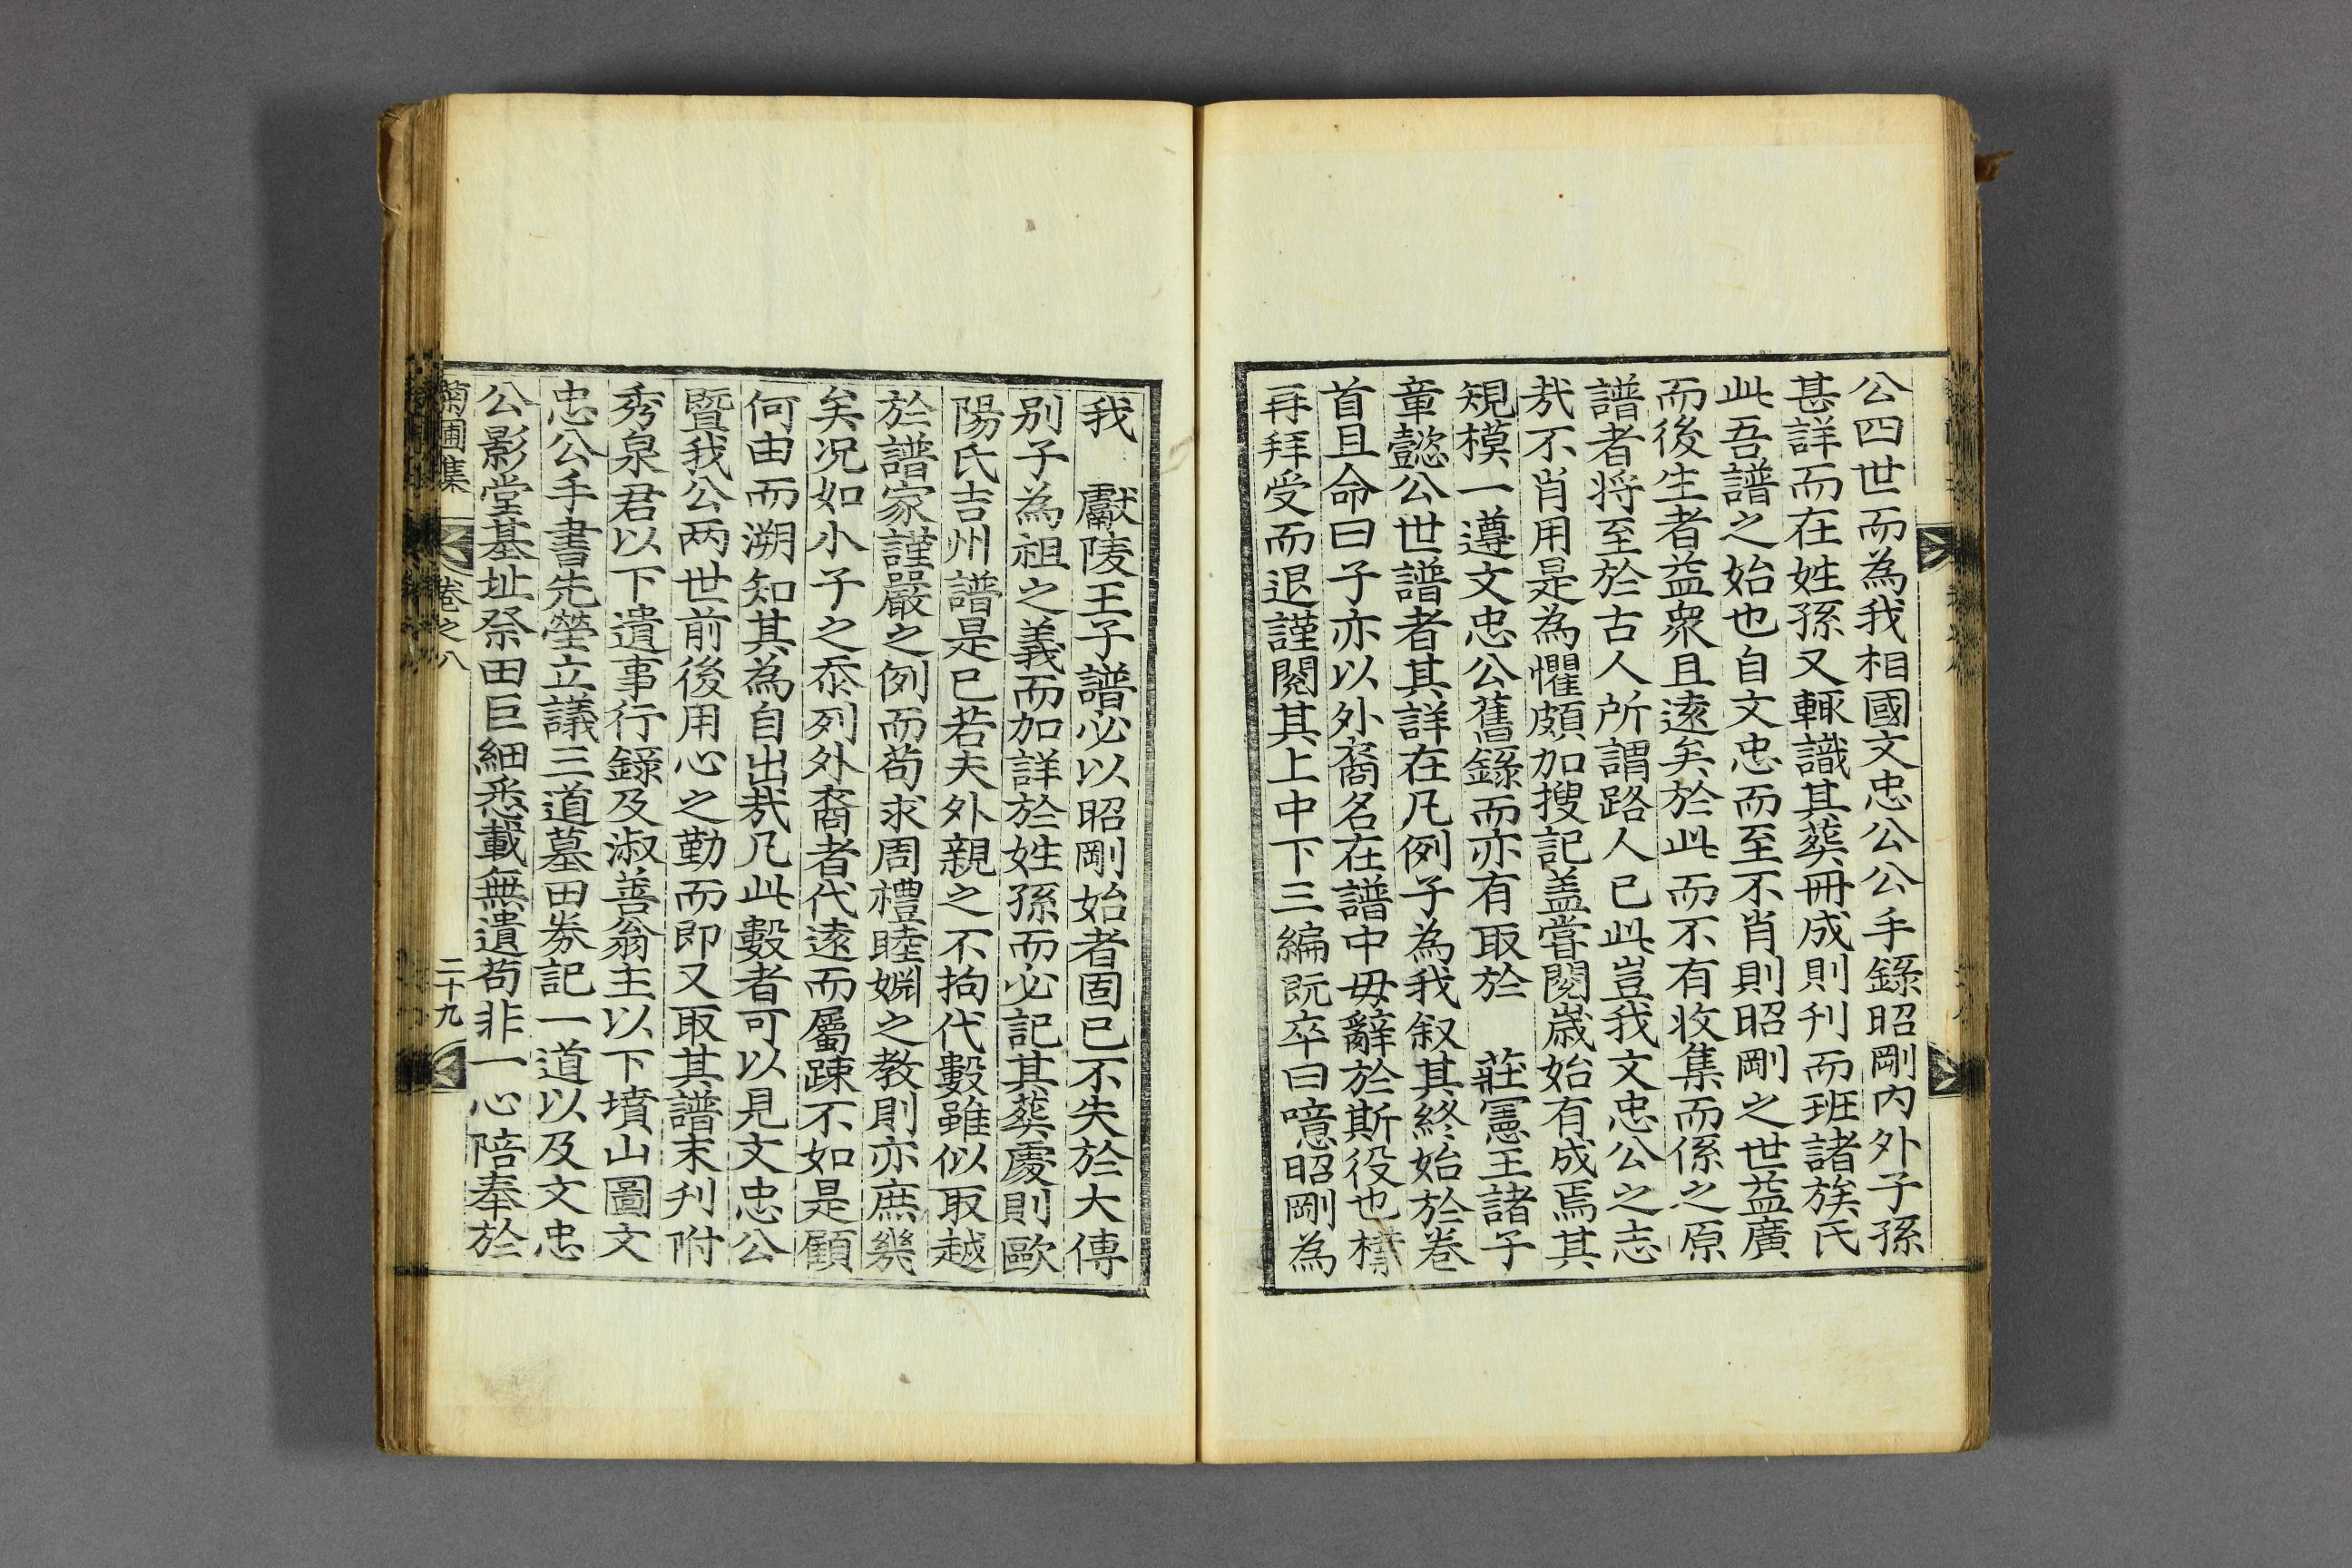 公四世而為我相國文忠公公手錄昭剛內外子孫
甚詳而在姓孫又輒識其葬冊成則刋而班諸族氏
此吾譜之始也自文忠而至不肖則昭剛之世益廣
而後生者益衆且遠矣於此而不有收集而係之原
譜者将至於古人所謂路人已此豈我文忠公之志
㢤不肖用是為懼頗加搜記盖甞閱嵗始有成焉其
規模一遵文忠公舊錄而亦有取於 莊憲王諸子
章懿公世譜者其詳在凡例子為我叙其終始於卷
首且命曰子亦以外裔名在譜中毋辭於斯役也
再拜受而退謹閱其上中下三編旣卒曰噫昭剛為
我 獻陵王子譜必以昭剛始者固已不失於大傳
别子為祖之義而加詳於姓孫而必記其葬處則歐
陽氏吉州譜是已若夫外親之不拘代數雖似取越
於譜家謹嚴之例而苟求周禮睦婣之教則亦庶㡬
矣况如小子之忝列外裔者代遠而屬踈不如是顧
何由而溯知其為自出㢤凡此數者可以見文忠公
曁我公两世前後用心之勤而即又取其譜末刋附
秀泉君以下遺事行錄及淑善翁主以下墳山圖文
忠公手書先塋立議三道墓田券記一道以及文忠
公影堂基址祭田巨細悉載無遺苟非一心陪奉於
菊圃集 卷之八 二十九